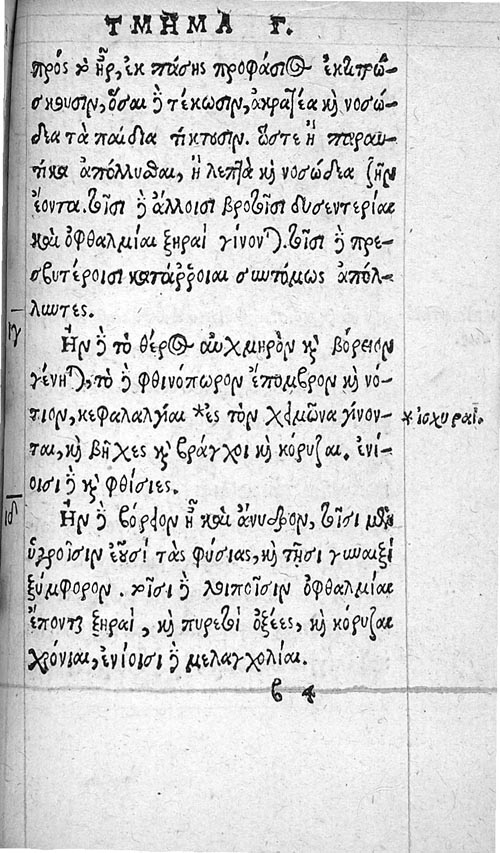 ΤΜΗΜΑ Γ.
πρὸς τὸ ἦρ, ἐκ πάσης προφάσιος ἐκτιτρώ-
σκουσιν, ὅσαι δ' ἂν τέκωσιν, ἀκρατέα καὶ νοσώ-
δεα τὰ παιδία τίκτουσιν. ὥστε ἢ παραυ-
τίκα ἀπόλλυσθαι, ἢ λεπτὰ καὶ νοσώδεα ζῆν
ἐόντα. τοῖσι δὲ ἄλλοισι βροτοῖσι δυσεντερίαι
καὶ ὀφθαλμίαι ξηραὶ γίνονται. τοῖσι δὲ πρε-
σβυτέροισι κατάρῥοιαι συντόμως ἀπολ-
λῦντες.
ιγ
Ἢν δὲ τὸ θέρος αὐχμηρὸν καὶ βόρειον
γένηται, τὸ δὲ φθινόπωρον ἔπομβρον καὶ νό-
τιον, κεφαλαλγίαι *ἐς τὸν χειμῶνα γίνον-
*ἰσχυραί.
ται, καὶ βῆχες καὶ βράγχοι καὶ κόρυζαι. ἐνί-
οισι δὲ καὶ φθίσιες.
ιδ
Ἢν δὲ βόρειον ᾖ καὶ ἄνυδρον, τοῖσι μὲν
ὑγροῖσιν ἐοῦσι τὰς φύσιας, καὶ τῇσι γυναιξὶ
ξύμφορον. τοῖσι δὲ λοιποῖσιν ὀφθαλμίαι
ἔσονται ξηραὶ, καὶ πυρετοὶ ὀξέες, καὶ κόρυζαι
χρόνιαι, ἐνίοισι δὲ μελαγχολίαι.
β 4